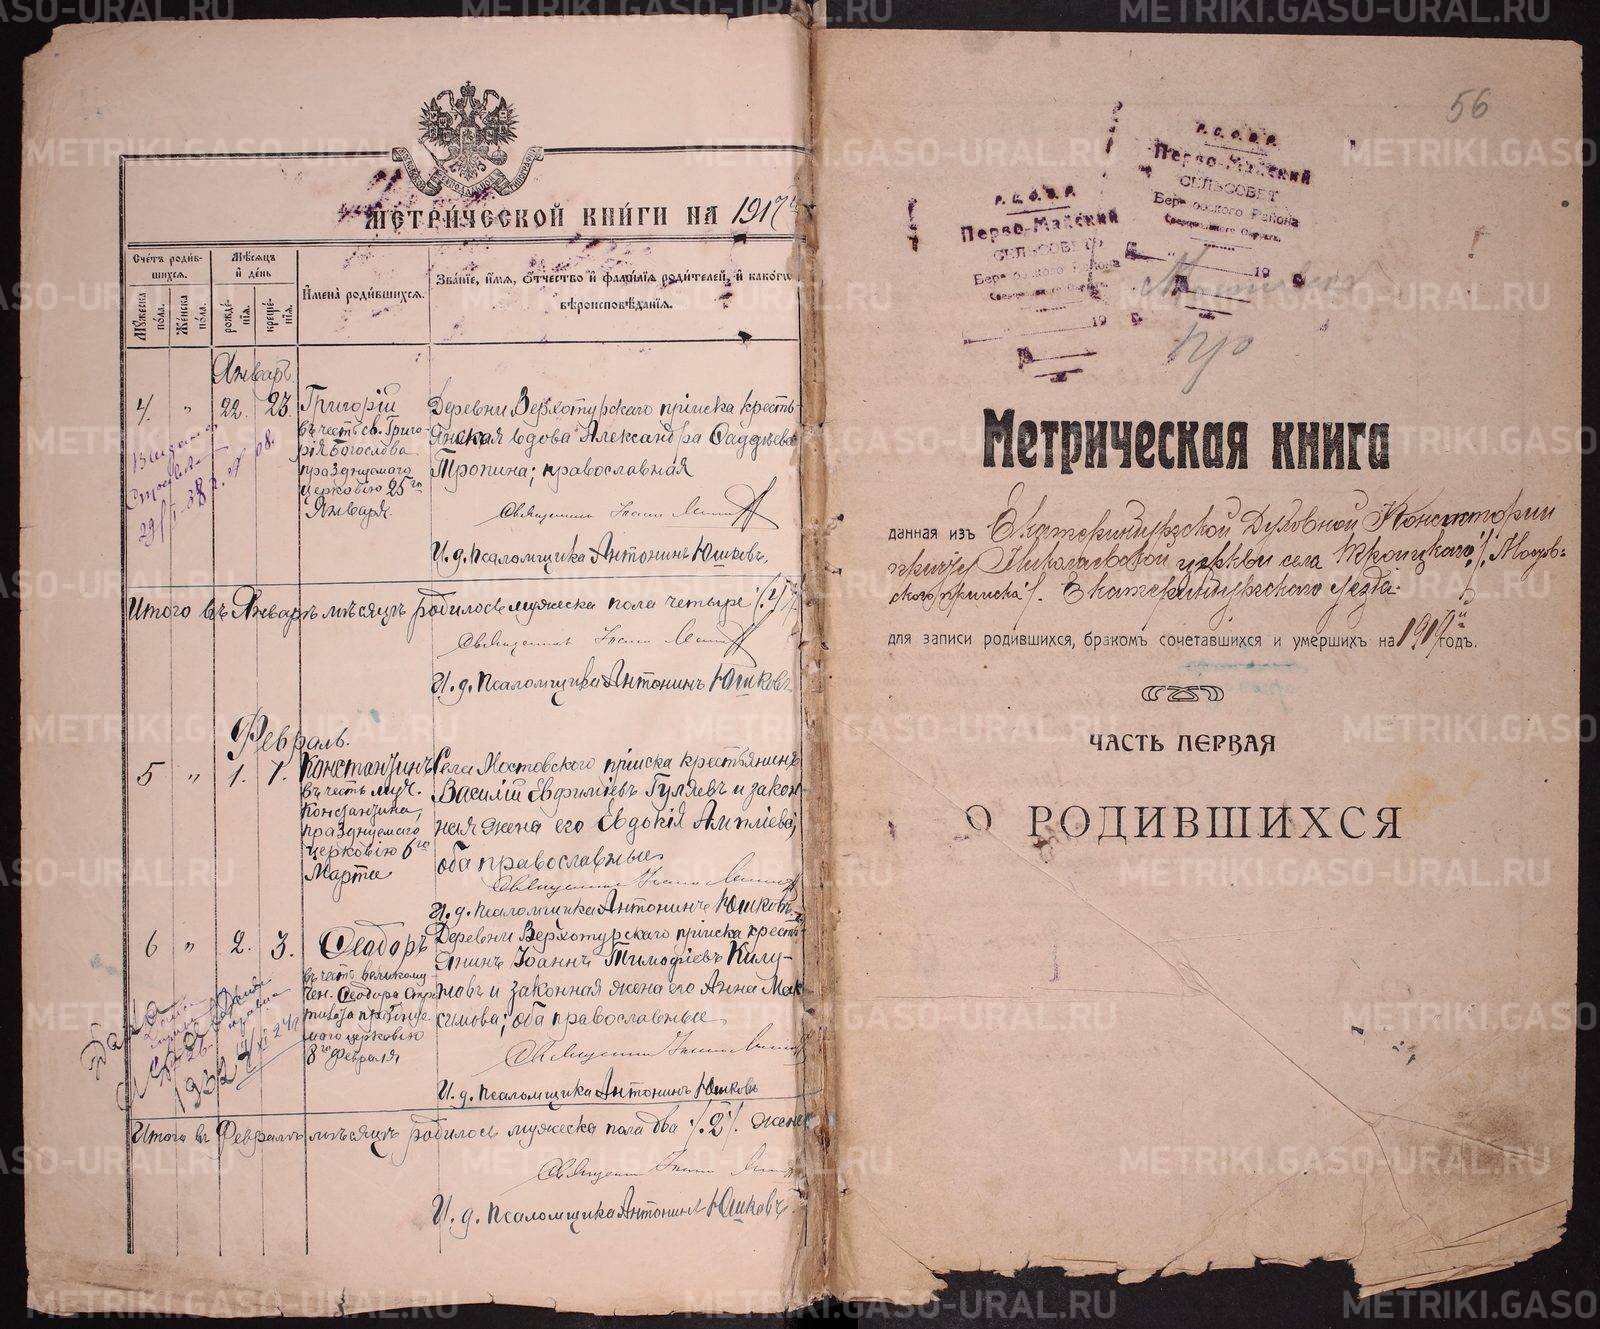 МЕТРИЧЕСКОЙ КНИГИ НА 1917й
Счетъ родив-
шихся.
Мѣсяцъ
и день
Имена родившихся.
Званіе, имя, отчество и фамилія родителей, и какого
вѣроисповѣданія.
Мужеска пола.
Женска пола.
рожде-
нія.
креще-
нія.
Январь
4. " 22. 23.
Григорій
въ честь св. Григо-
рія Богослова
празднуемаго
церковію 25го
Января.
Деревни Верхотурскаго пріиска кресть-
янская вдова Александра
Тропина; православная
Священникъ Іоаннъ
И. д. псаломщика Антонинъ Юшковъ.
Итого въ Январѣ мѣсяцѣ родилось мужеска пола четыре /.4/.
Священникъ Іоаннъ
И. д. псаломщика Антонинъ Юшковъ
Февраль.
5 " 1. 1.
Константинъ
въ честь муч.
Константина,
празднуемаго
церковію 6го
Марта
Села Мостовского пріиска крестьянинъ
Василій Евфиміевъ Гуляевъ и закон-
ная жена его Евдокія
оба православные.
Священникъ Іоаннъ
И. д. псаломщика Антонинъ Юшковъ.
6 " 2. 3.
Ѳеодоръ
въ честь великому-
чен. Ѳеодора Стра-
тилата праздне
маго церковію
8го Февраля
Деревни Верхотурскаго пріиска кресть-
янинъ Іоаннъ Тимофіевъ
и законная жена его Анна Мак-
симова; оба православные
Священникъ Іоаннъ
И. д. псаломщика Антонинъ Юшковъ
Итого въ Февралѣ мѣсяцѣ родилось мужеска пола два /.2/. женск
Священникъ Іоаннъ
И. д. псаломщика Антонинъ Юшковъ.
56
Р. С. Ф. С. Р.
Перво-Майский
СЕЛЬСОВЕТ
Березовского Района
Свердловского Округа
19
Р. С. Ф. С. Р.
Перво-Майский
СЕЛЬСОВЕТ
Березовского Района
Свердловского Округа
19
Метрическая книга
данная изъ Екатеринбургской Духовной Консисторіи
причту Николаевской церкви села Троицкаго /. Мостов-
ского пріиска /. Екатеринбургскаго уѣзда.
для записи родившихся, бракомъ сочетавшихся и умершихъ на 1919й годъ.
ЧАСТЬ ПЕРВАЯ
О РОДИВШИХСЯ
METRIKI.GASO-URAL.RU